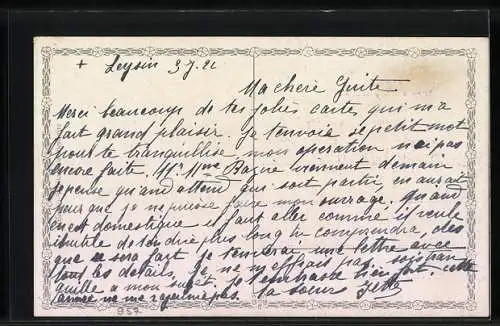 + Leysin 3.7.21
Ma chère Guite
Merci beaucoup de tes jolies cartes qui m'a
fait grand plaisir. Je t'envoie ce petit mot
pour te tranquillise, mon operation n'ai pas
encore faite. M. Mme viennent demain
je pense quand attend que soit partie, on aurait
peur que je ne puisse faire mon ouvrage. Quand
on est domestique il faut aller comme il veule
inutile de dire plus long tu comprendra, dès
que ce sera fait je t'enverrai une lettre avec
tous les détails, je ne pas, sois sans
à mon sujet. Je t'embrasse bien fort, cette
année ne me pas. ta sœur Jette
957